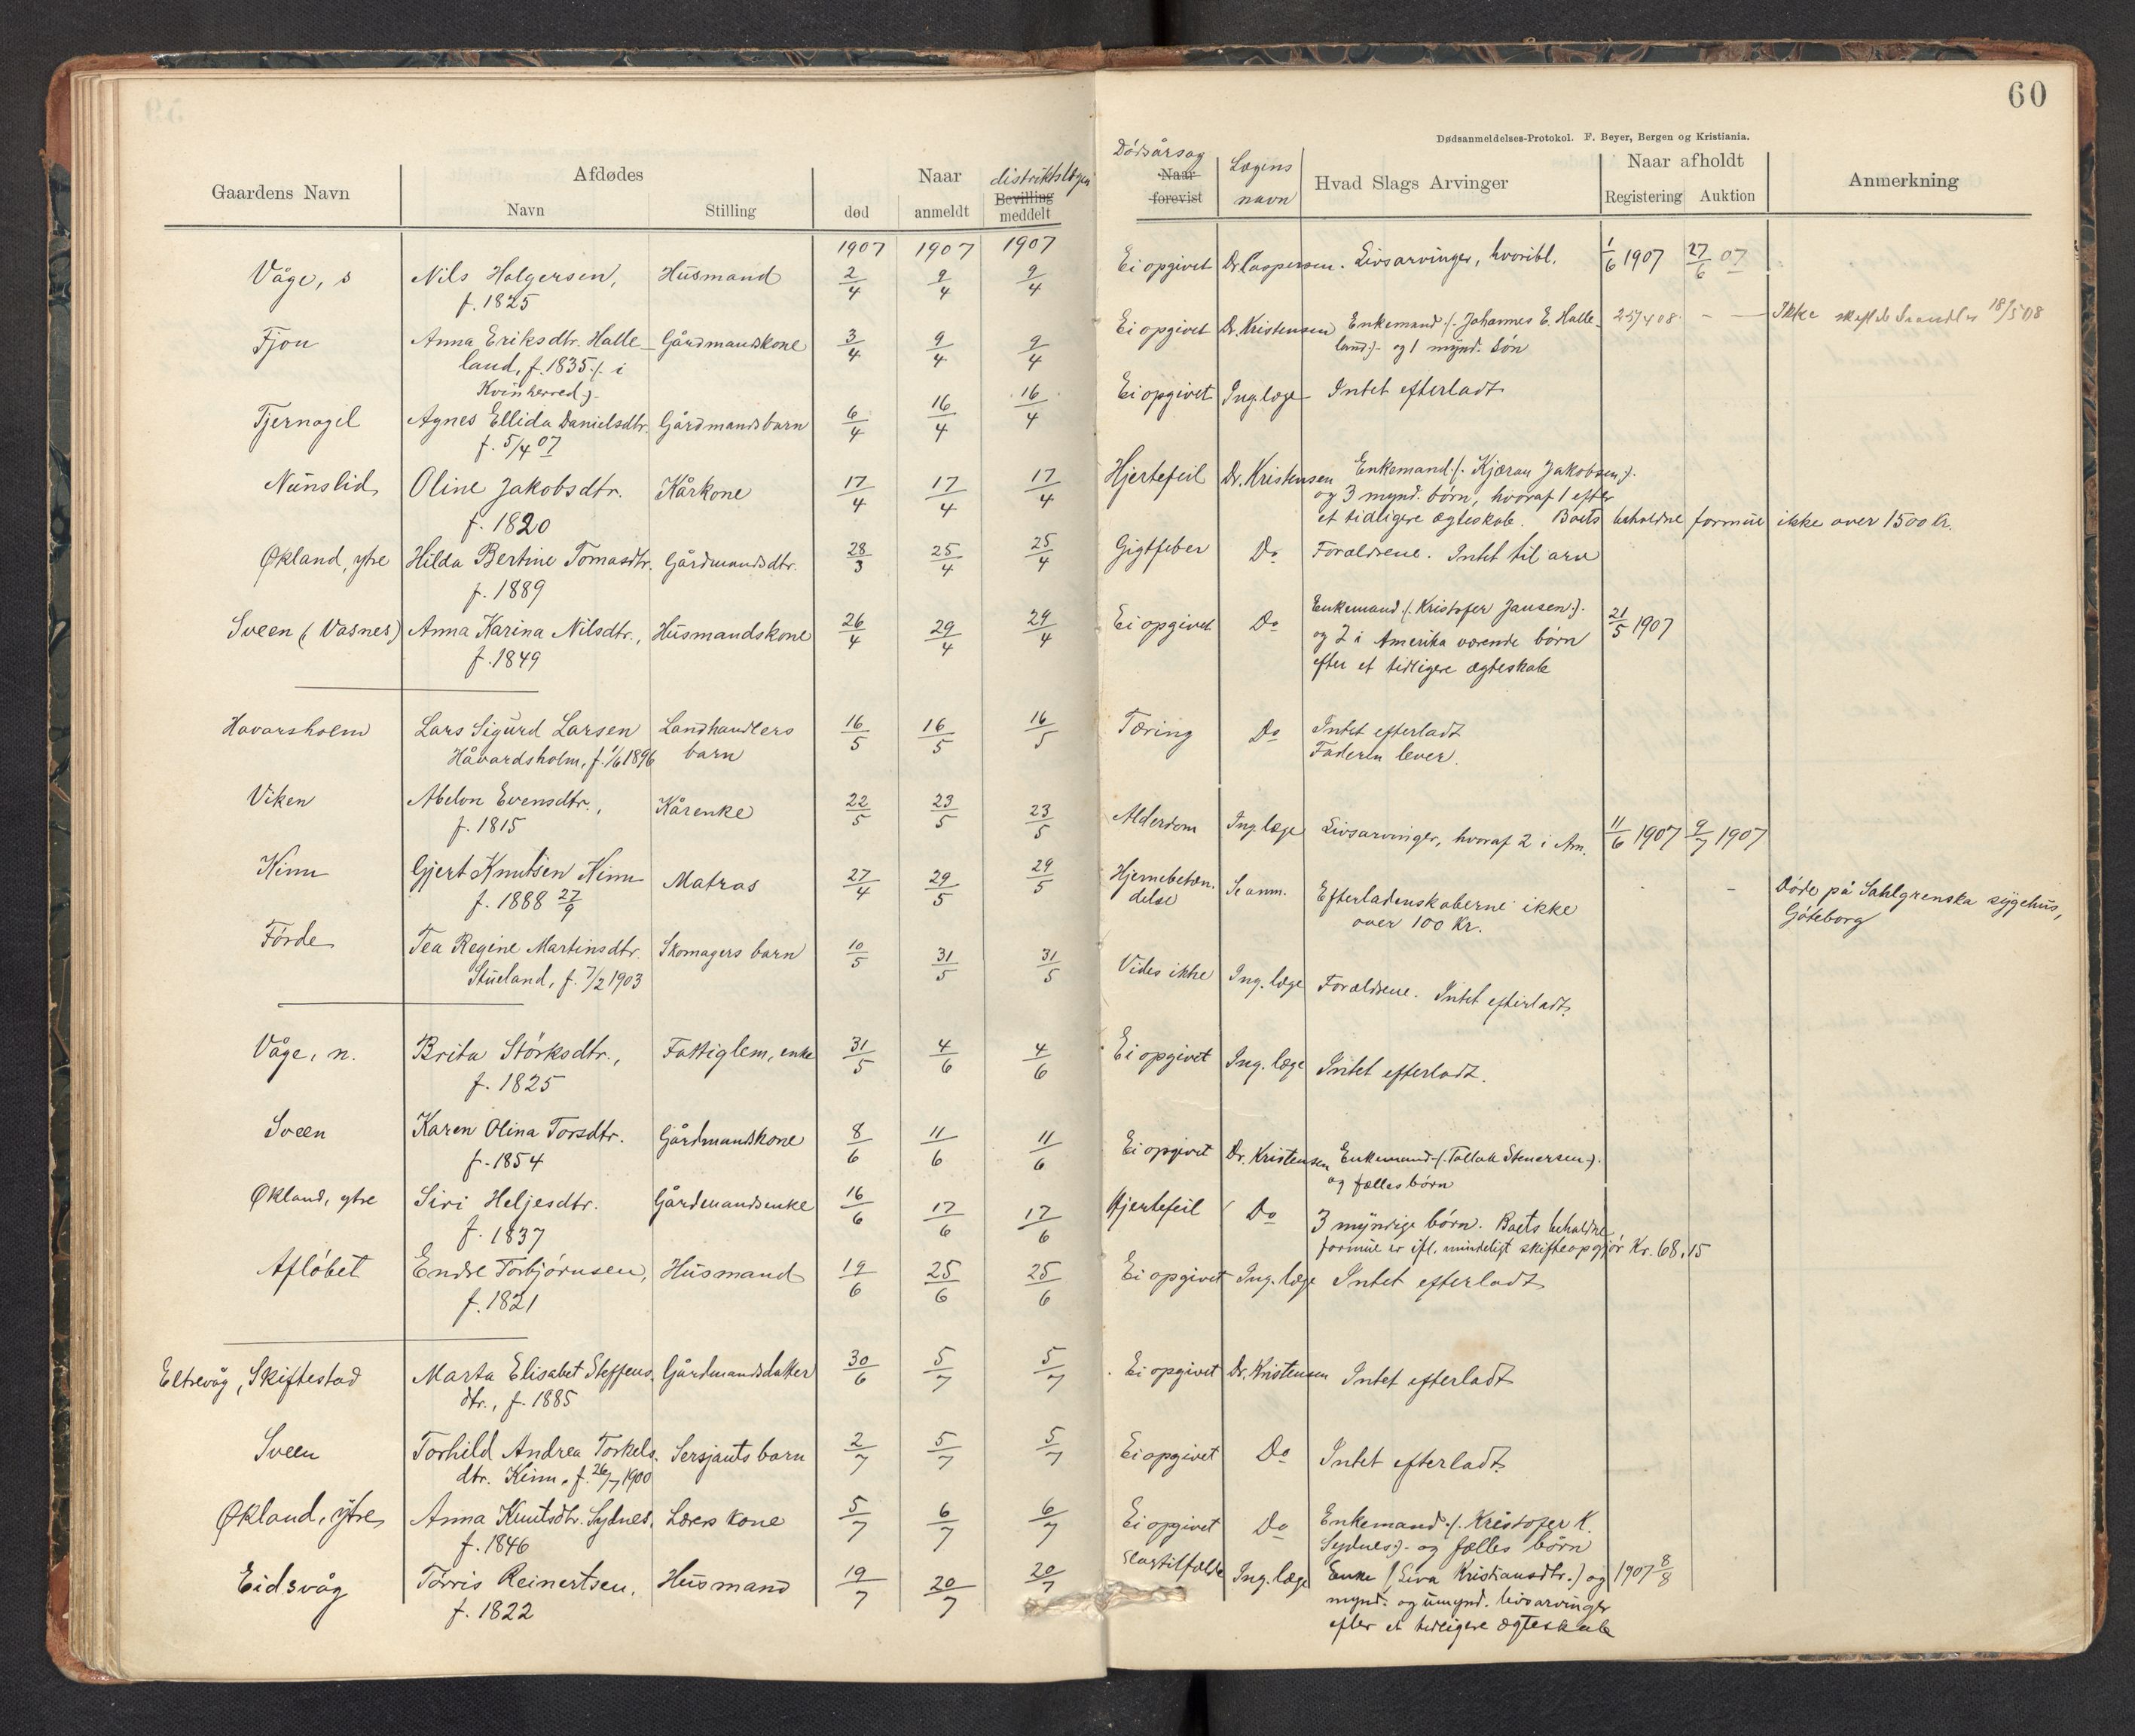 60
Dødsanmeldelses-Protokol. F. Beyer, Bergen og Kristiania.
Gaardens Navn
Afdødes
Navn
Stilling
Naar
død
anmeldt
distriktslægen
Bevilling
meddelt
Dödsårsag
Naar
forevist
Lægens
navn
Hvad Slags Arvinger
Naar afholdt
Registering
Auktion
Anmerkning
1907 1907 1907
Våge, s Nils Holgersen, Husmand 2/4 9/4 9/4 Ei opgivet Dr. Caspersen. Livsarvinger, hvoribl. 1/6 1907 27/6 07
f. 1825
Fjon Anna Eriksdtr. Halle- Gårdmandskone 3/4 9/4 9/4 Ei opgivet Dr. Kristensen Enkemand ./. Johannes E. Halle- 25/4 08 - - Ikke 18/5 08
land, f. 1835 ./. i land ./. og 1 mynd. sön
Kvinherred ./.
Tjernagel Agnes Ellida Danielsdtr. Gårdmandsbarn 6/4 16/4 16/4 Ei opgivet Ing. læge Intet efterladt
f. 5/4 07
Nunslid Oline Jakobsdtr. Kårkone 17/4 17/4 17/4 Hjertefeil Dr. Kristensen Enkemand ./. Kjæran Jakobsen ./.
f. 1820 og 3 mynd. börn, hvoraf 1 efter
et tidligere ægteskab. Boets beholdne formue ikke over 1500 Kr.
Økland, ytre Hilda Bertine Tomasdtr. Gårdmandsdtr. 28/3 25/4 25/4 Gigtfeber Do Forældrene. Intet til arv
f. 1889
Sveen (Vasnes) Anna Karina Nilsdtr., Husmandskone 26/4 29/4 29/4 Ei opgivet Do Enkemand ./. Kristofer Jansen ./. 21/5 1907
f. 1849 og 2 i Amerika værende börn
efter et tidligere ægteskab
Havarsholm Lars Sigurd Larsen Landhandlers 16/5 16/5 16/5 Tæring Do Intet efterladt
Håvardsholm, f. 1/6 1896 barn Faderen lever.
Viken Abelon Evensdtr., Kårenke 22/5 23/5 23/5 Alderdom Ing. læge Livsarvinger, hvoraf 2 i Am. 11/6 1907 9/7 1907
f. 1815
Kinn Gjert Knutsen Kinn Matros 27/4 29/5 29/5 Hjernebetæn- Se anm. Efterladenskaberne ikke - - Döde på Sahlgrenska sygehus,
f. 1888 27/9 delse over 100 Kr. Göteborg
Förde Tea Regine Martinsdtr. Skomagers barn 10/5 31/5 31/5 Vides ikke Ing. læge Forældrene. Intet efterladt.
Stueland, f. 7/2 1903
Våge, n. Brita Störksdtr., Fattiglem, enke 31/5 4/6 4/6 Ei opgivet Ing. læge Intet efterladt.
f. 1825
Sveen Karen Olina Torsdtr. Gårdmandskone 8/6 11/6 11/6 Ei opgivet Dr. Kristensen Enkemand ./. Tollak Stenersen ./.
f. 1854 og fælles börn
Økland, ytre Siri Heljesdtr. Gårdmandsenke 16/6 17/6 17/6 Hjertefeil Do 3 myndige börn. Boets beholdne
f. 1837 formue er ifl. mindeligt skifteopgjör Kr. 68,15
Aflöbet Endre Torbjörnsen, Husmand 19/6 25/6 25/6 Ei opgivet Ing. læge Intet efterladt
f. 1821
Eltrevåg, Skiftestad Marta Elisabet Steffens- Gårdmandsdatter 30/6 5/7 5/7 Ei opgivet Dr. Kristensen Intet efterladt
dtr., f. 1885
Sveen Torhild Andrea Torkels- Sersjants barn 2/7 5/7 5/7 Ei opgivet Do Intet efterladt.
dtr. Kinn. f. 26/7 1900
Økland, ytre Anna Knutsdtr. Sydnes, Lærers kone 5/7 6/7 6/7 Ei opgivet Do Enkemand ./. Kristofer K.
f. 1846 Sydnes ./. og fælles börn
Eidsvåg Törris Reinertsen, Husmand 19/7 20/7 20/7 Slagtilfælde Ing. læge Enke (Siva Kristiansdtr.) og 1907 8/8
f. 1822 mynd. og umynd. livsarvinger
efter et tidligere ægteskab